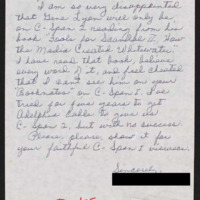 I am so very disappointed
that Gene Lyon will only be
on C-Span 2 reading from his
book "Fools for Scandal: How
the Media Created Whitewater"
I have read that book, believe
every word of it, and feel cheated
that I can't see him on your
"Booknotes" on C-Span 1. I've
tried for five years to get
Adelphia Cable to give us
C-Span 2, but with no success.
Please, please, show it for
your faithful C-Span 1 viewers.
Sincerely,